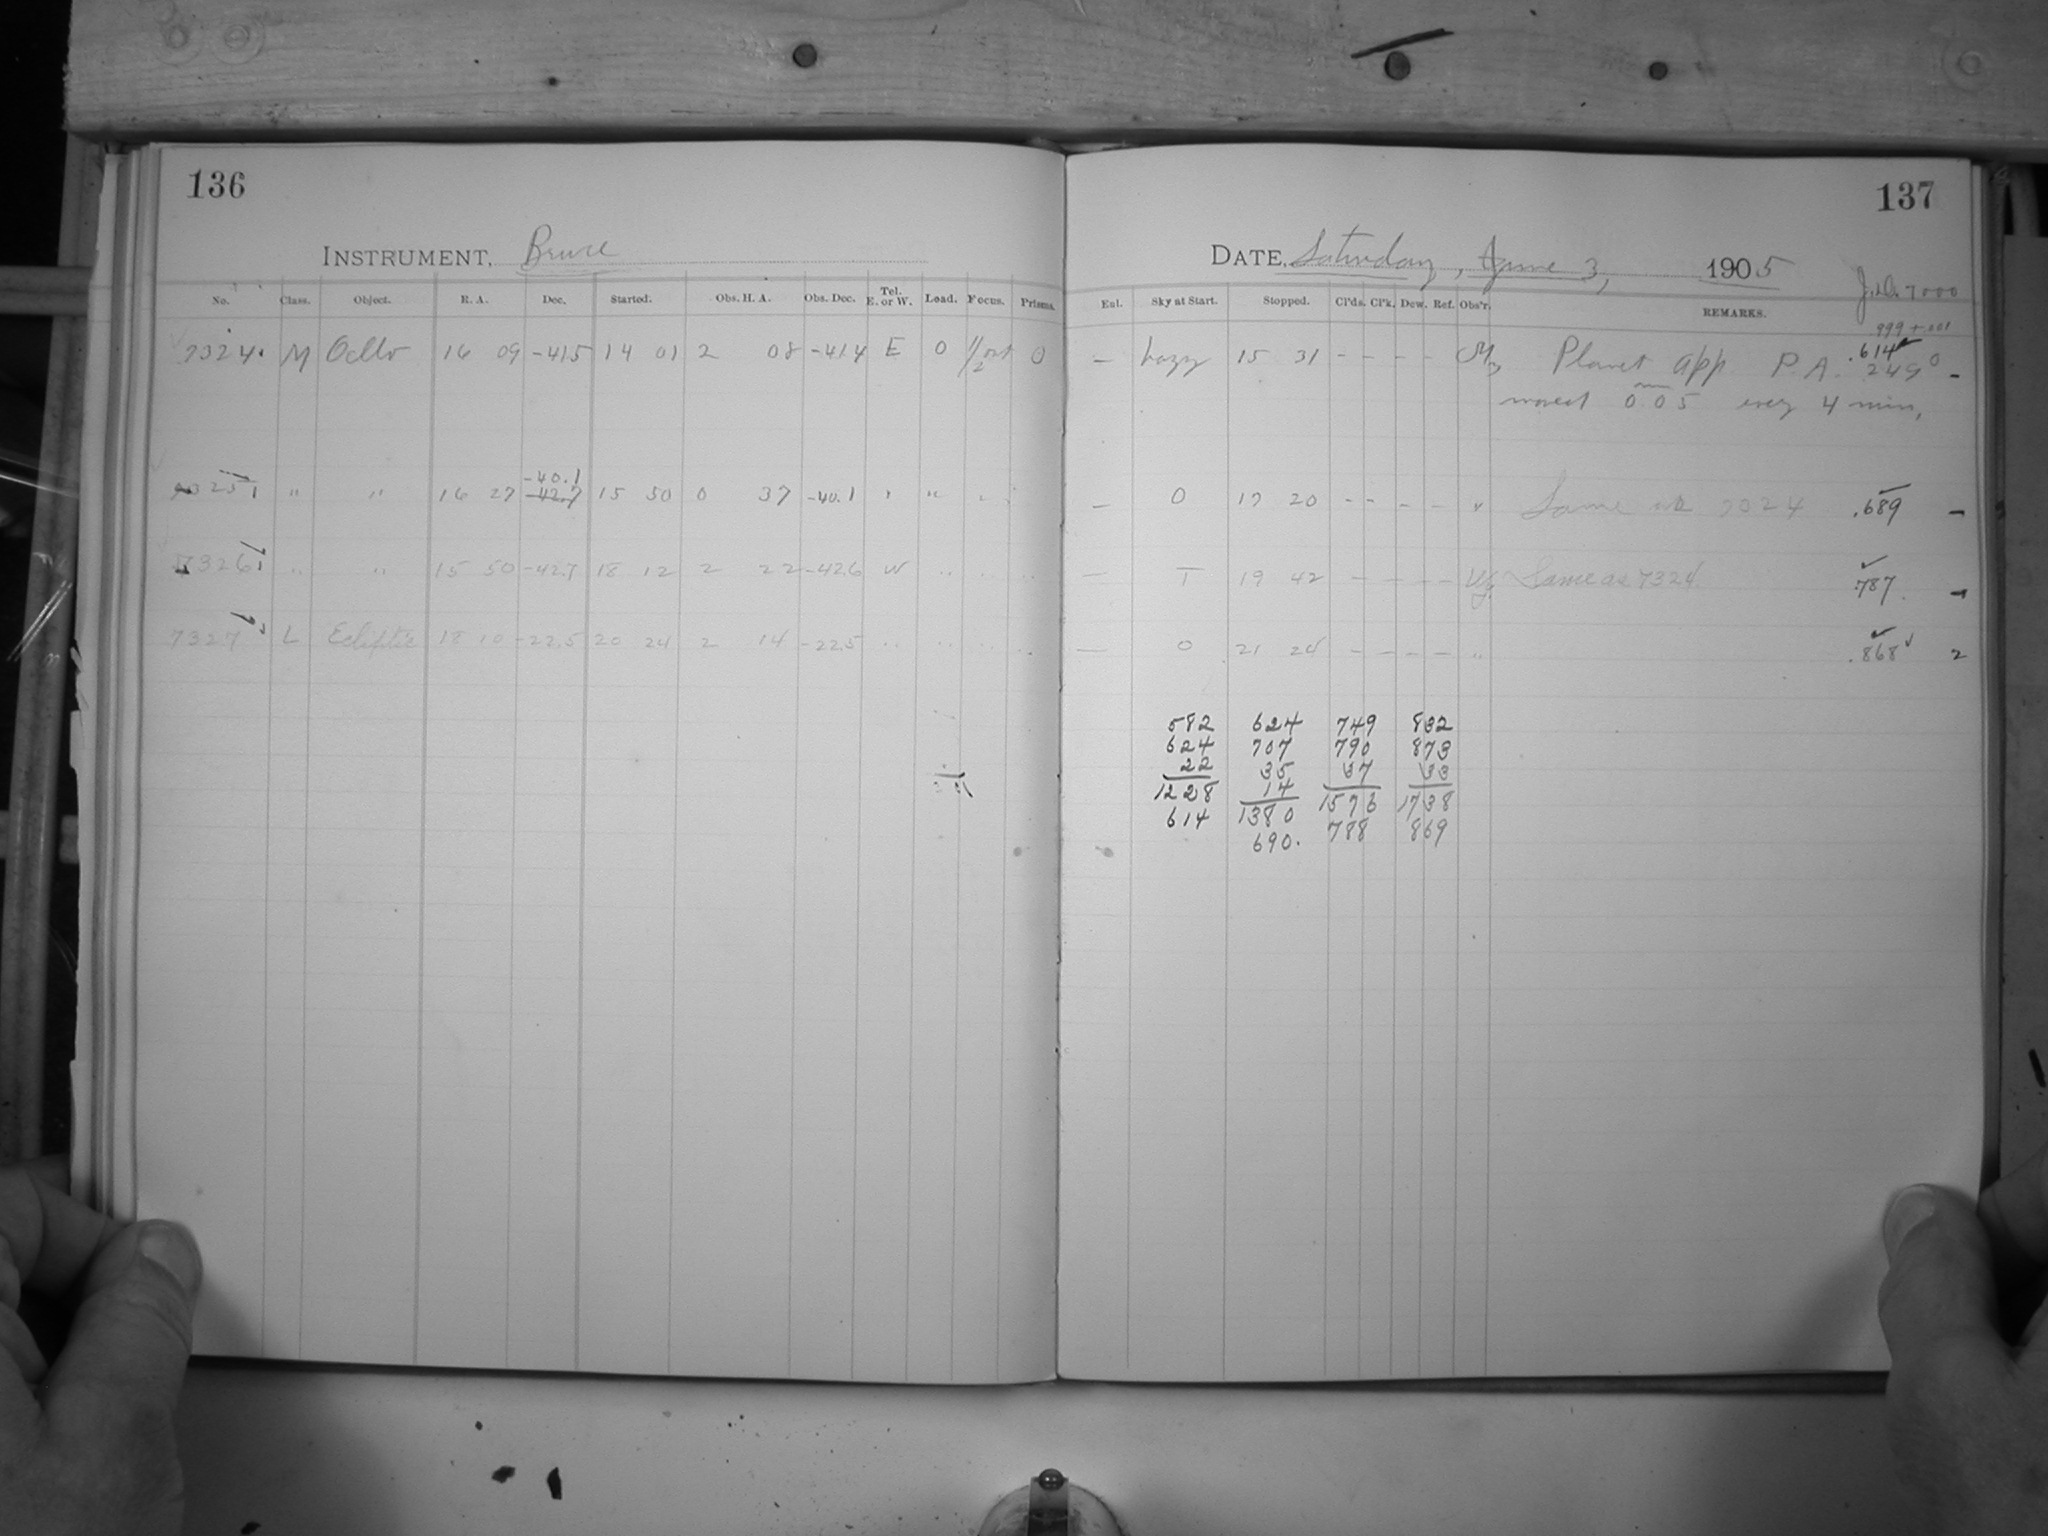 136
INSTRUMENT, Bruce
No. Class. Object. R. A. Dec. Started. Obs. H. A. Obs. Dec. Tel. E. or W. Load. Focus. Prisms.
7324 M Ocllo 16 09 -41.5 14 01 2 08 -41.4 E 0 1/2 out 0
-40.1
7325 " " 16 27 -42.7 15 50 0 37 -40.1 " " " "
7326 " " 15 50 -42.7 18 12 2 22 -42.6 W " " "
7327 L Ecliptic 18 10 -22.5 20 24 2 14 -22.5 " " " "
137
DATE, Saturday, June 3, 1905
J.D. 7000
Eul. Sky at Start. Stopped. Cl'ds. Cl'k. Dew. Ref. Obs'r. REMARKS.
999 + .001
— hazy 15 31 - - - - Planet app. P.A. 249° -
.614
moved 0.05 mm every 4 min.
— 0 17 20 - - - - " Same as 7324 .689 -
— T 19 42 - - - - Same as 7324. .787 -
— 0 21 24 - - - - " .868 2
582 624 749 832
624 707 790 873
22 35 37 33
1228 14 1576 1738
614 1380 788 869
690.